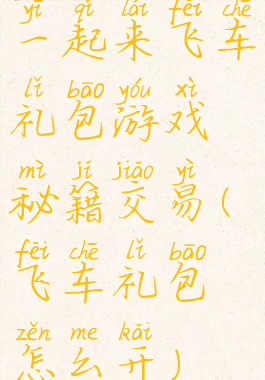 yì qǐ lái fēi chē
一起来飞车
lǐ bāo yóu xì
礼包游戏
mì jí jiāo yì
秘籍交易(
fēi chē lǐ bāo
飞车礼包
zěn me kāi
怎么开)